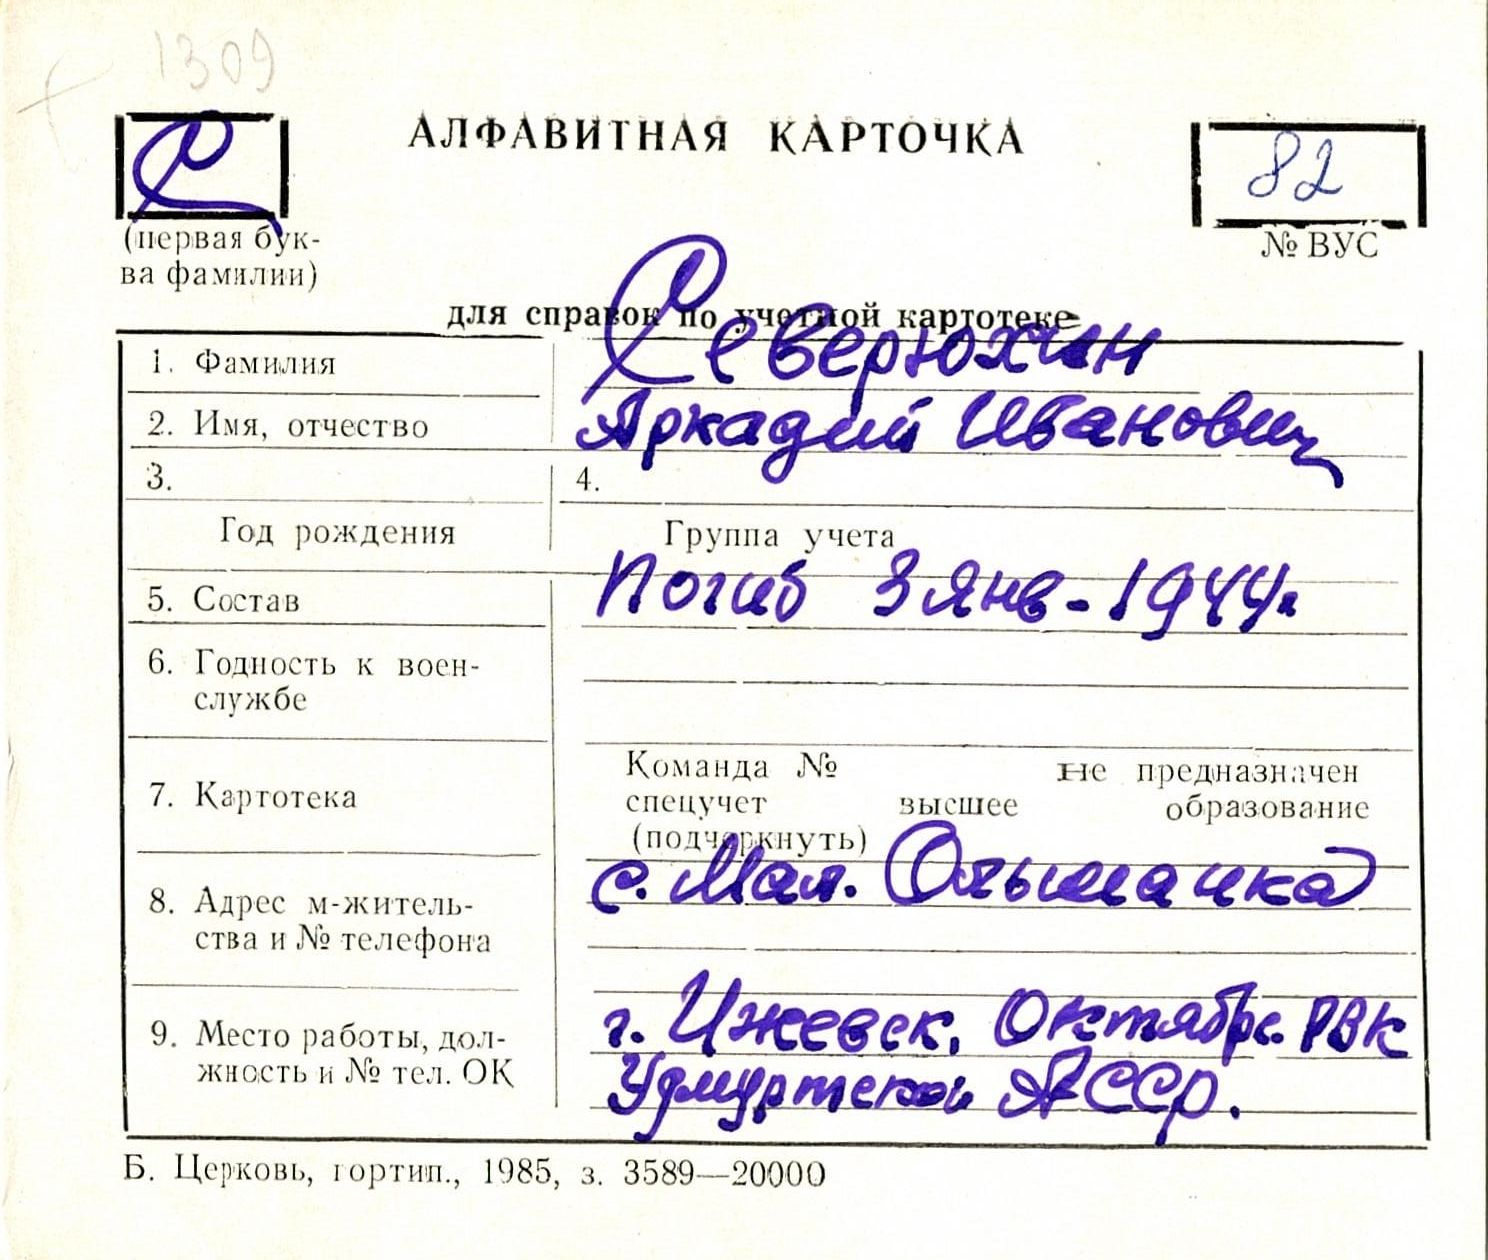 1309
С
АЛФАВИТНАЯ КАРТОЧКА
82
(первая бук-
ва фамилии)
№ ВУС
для справок по учетной картотеке
1. Фамилия Северюхин
2. Имя, отчество Аркадий Иванович
3. 4.
Год рождения Группа учета
5. Состав Погиб 3 янв-1944г.
6. Годность к воен-
службе
7. Картотека
Команда № не предназначен
спецучет высшее образование
(подчеркнуть)
8. Адрес м-житель-
ства и № телефона
с. Мал. Ольшанка
9. Место работы, дол-
жность и № тел. ОК
г. Ижевск, Октябрс. РВК
Удмуртской АССР.
Б. Церковь, гортип., 1985, з. 3589—20000